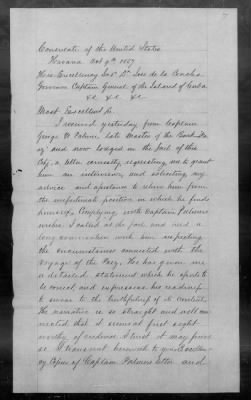 Consulate of the United States
Havana Oct 9th 1857
His Excellency Sor Dn Jose de la Concha
Governor Captain General of the Island of Cuba
&c &c &c
Most Excellent Sir
I received yesterday from Captain
George W Palmer, late Master of the Bark
and now lodged in the Jail of this
City, a letter earnestly requesting me to grant
him an interview, and soliciting my
advice and assistance to relieve him from
the unfortunate position in which he finds
himself. Complying with Captain Palmer's
wishes I called at the Jail and had a
long conversation with him respecting
the circumstances connected with the
voyage of the He has given me
a detailed statement which he asserts to
be correct and expresses his readiness
to swear to the truthfulness of its contents.
The narrative is so straight and well con
nected that it seems at first sight
worthy of credence & trust it may prove
so. I transmit herewith to your Excellen
cy Copies of Captain Palmer's letter and